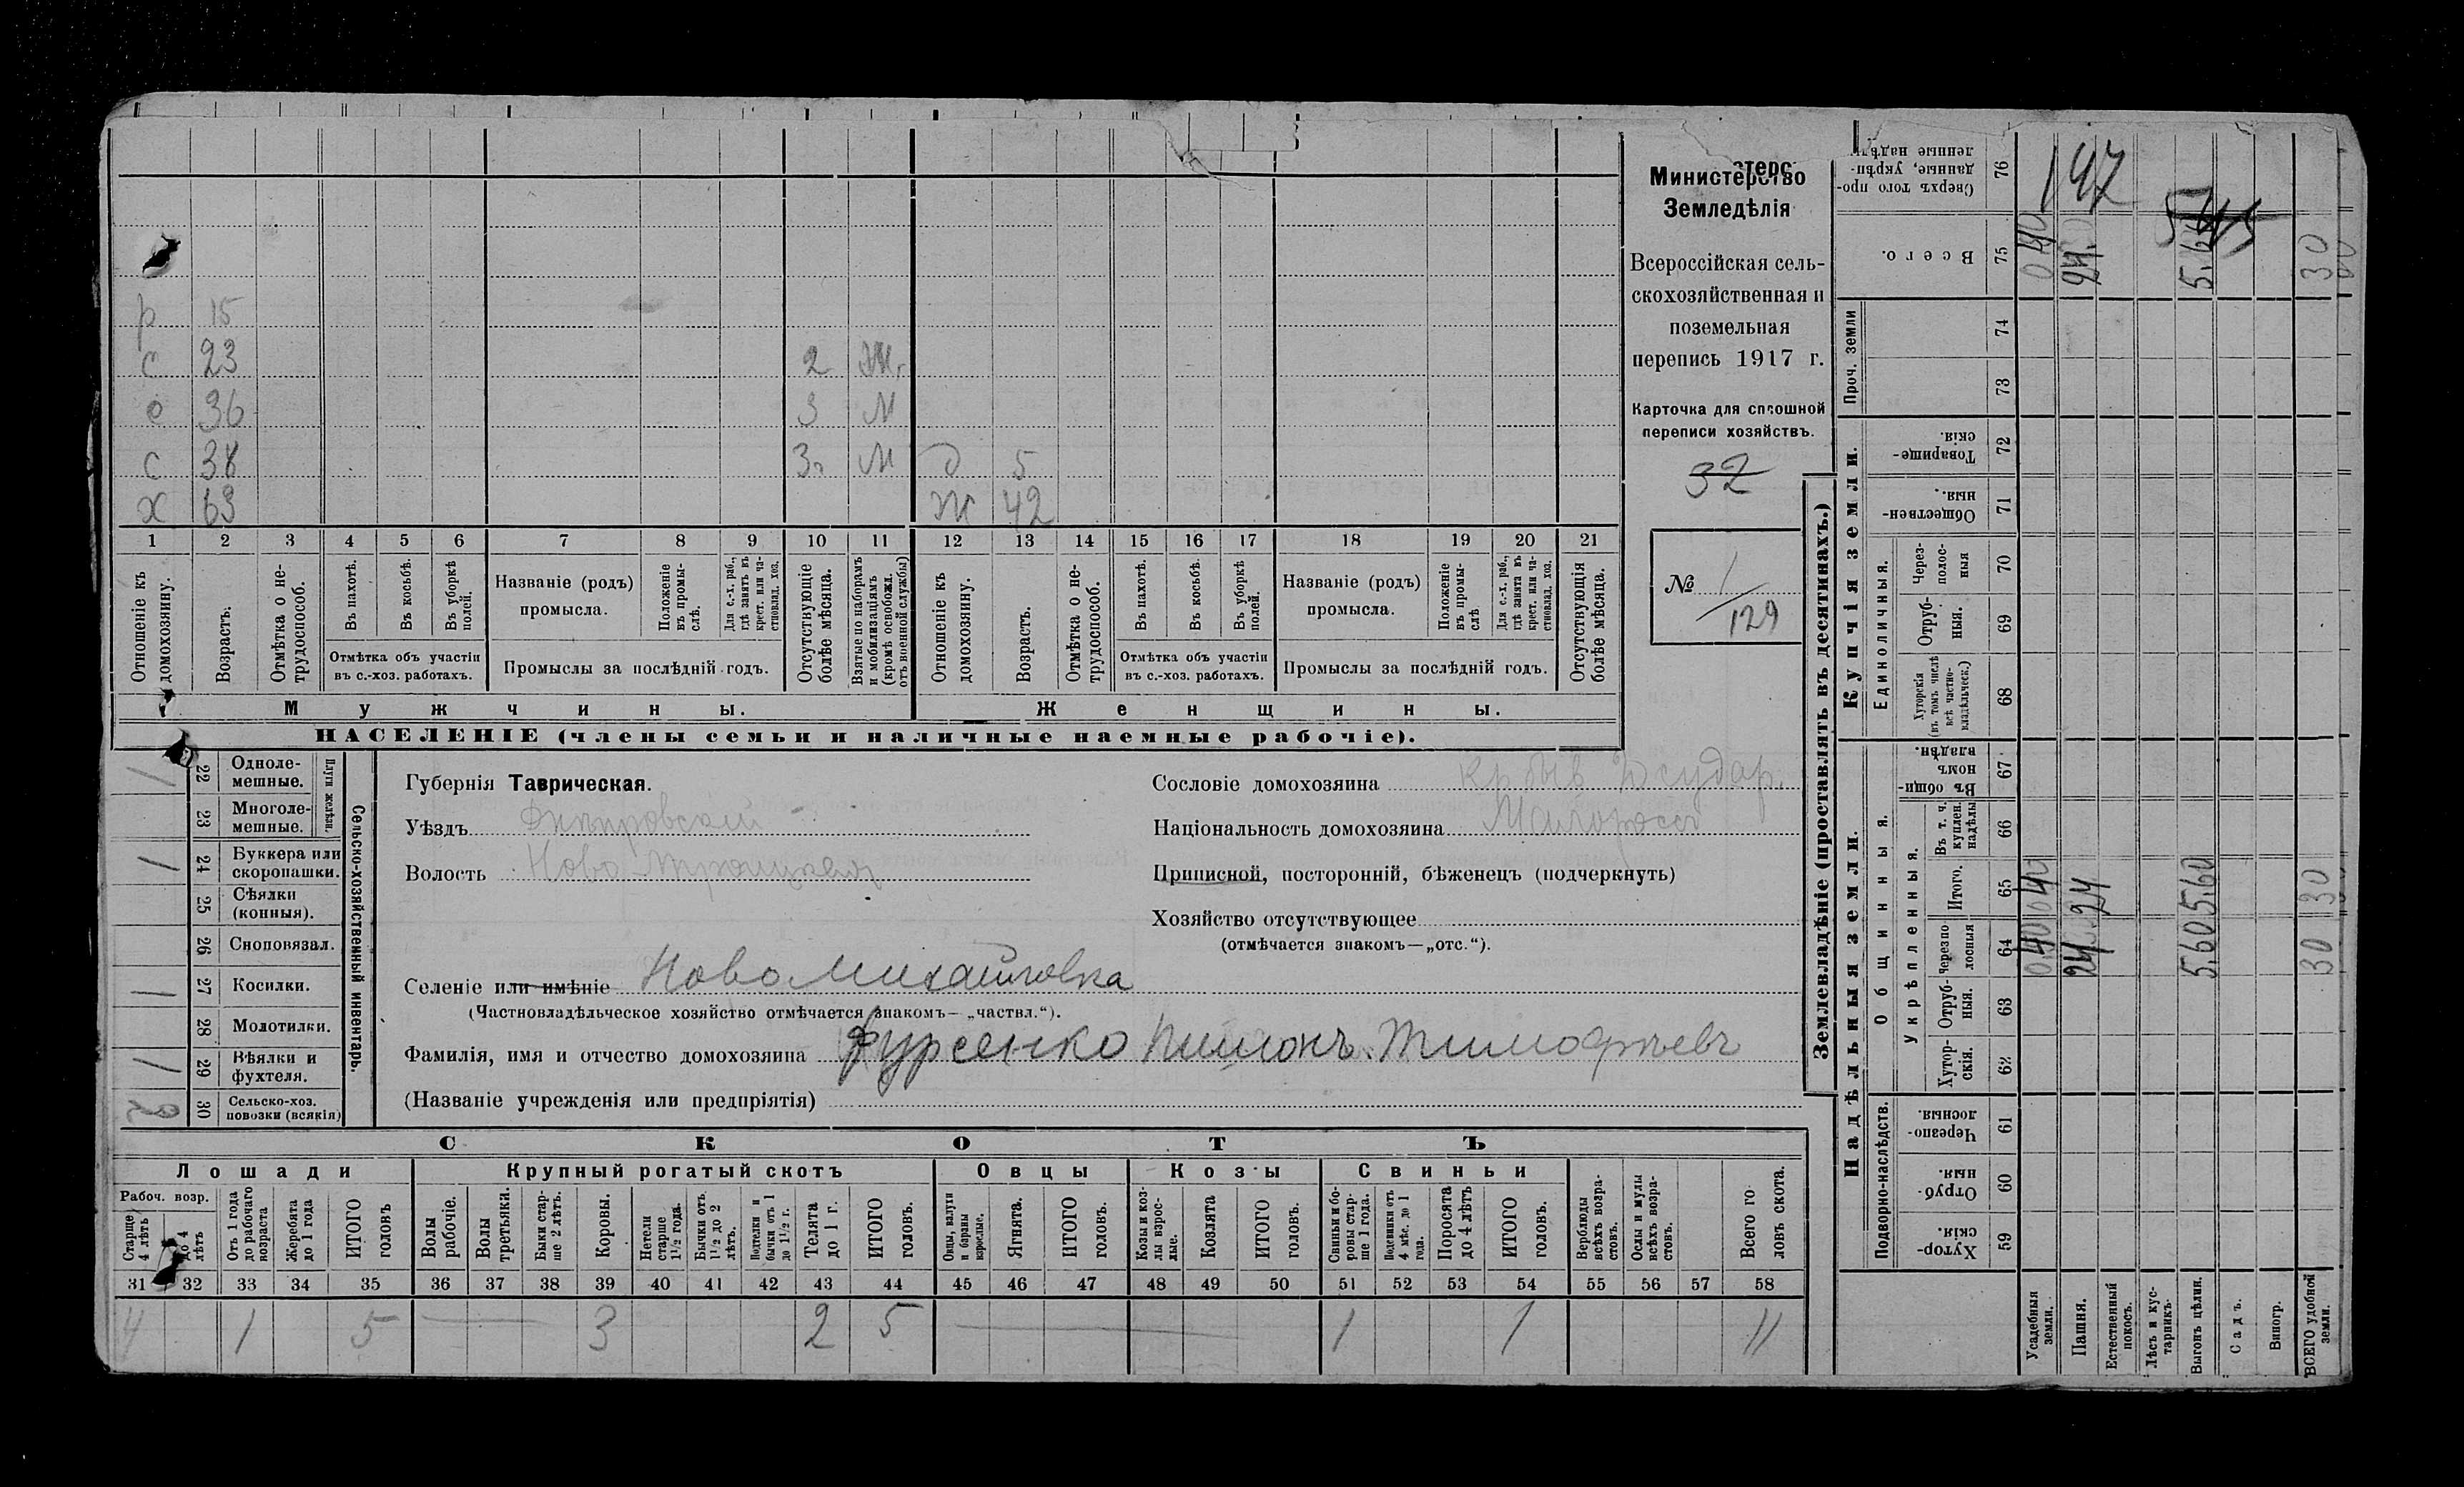 р 15
с 23 2 М.
с 36 3 М
с 38 3 М д 5
х 63 ж 42
1 2 3 4 5 6 7 8 9 10 11 12 13 14 15 16 17 18 19 20 21
Отношеніе къ домохозяину.
Возрастъ.
Отмѣтка о нетрудоспособ.
Въ пахотѣ.
Въ косьбѣ.
Въ уборкѣ полей.
Отмѣтка объ участіи
въ с.-хоз. работахъ.
Названіе (родъ)
промысла.
Положеніе въ промыслѣ.
Для с.-х. раб., гдѣ занятъ въ крест. или частновлад. хоз.
Промыслы за послѣдній годъ.
Отсутствующіе болѣе мѣсяца.
Взятые по наборамъ и мобилизаціямъ (кромѣ освобожд. отъ военной службы)
Отношеніе къ домохозяину.
Возрастъ.
Отмѣтка о нетрудоспособ.
Въ пахотѣ.
Въ косьбѣ.
Въ уборкѣ полей.
Отмѣтка объ участіи
въ с.-хоз. работахъ.
Названіе (родъ)
промысла.
Положеніе въ промыслѣ
Для с.-х. раб., гдѣ занята въ крест. или частновлад. хоз.
Промыслы за послѣдній годъ.
Отсутствующія болѣе мѣсяца.
Мужчины.
Женщины.
НАСЕЛЕНІЕ (члены семьи и наличные наемные рабочіе).
Министерство
Земледѣлія
Всероссійская сель-
скохозяйственная и
поземельная
перепись 1917 г.
Карточка для сплошной
переписи хозяйствъ.
32
№ 1/129
Сельско-хозяйственный инвентарь.
Плуги желѣзн.
1 22 Одноле-
мешные.
23 Многоле-
мешные.
1 24 Буккера или
скоропашки.
25 Сѣялки
(конныя).
26 Сноповязал.
1 27 Косилки.
28 Молотилки.
1 29 Вѣялки и
фухтеля.
2 30 Сельско-хоз.
повозки (всякія)
Губернія Таврическая.
Уѣздъ Днѣпровскій
Волость Ново Троицкая
Сословіе домохозяина кр. быв. Государ.
Національность домохозяина Малороссъ
Приписной, посторонній, бѣженецъ (подчеркнуть)
Хозяйство отсутствующее
(отмѣчается знакомъ—„отс.“).
Селеніе или имѣніе Ново Михайловка
(Частновладѣльческое хозяйство отмѣчается знакомъ— „частвл.“).
Фамилія, имя и отчество домохозяина Фурсенко Пименъ Тимофѣевъ
(Названіе учрежденія или предпріятія)
СКОТЪ
Лошади Крупный рогатый скотъ Овцы Козы Свиньи
Рабоч. возр.
Старше 4 лѣтъ
до 4 лѣтъ
Отъ 1 года до рабочаго возраста
Жеребята до 1 года
ИТОГО головъ
Волы рабочіе.
Волы третьяки.
Быки старше 2 лѣтъ.
Коровы.
Нетели старше 1½ года.
Бычки отъ 1½ до 2 лѣтъ.
Подтелки и бычки отъ 1 до 1½ г.
Телята до 1 г.
ИТОГО головъ.
Овцы, валухи и бараны взрослые.
Ягнята.
ИТОГО головъ.
Козы и козлы взрослые.
Козлята
ИТОГО головъ.
Свиньи и боровы старше 1 года.
Подсвинки отъ 4 мѣс. до 1 года.
Поросята до 4 лѣтъ
ИТОГО головъ.
Верблюды всѣхъ возрастовъ.
Ослы и мулы всѣхъ возрастовъ.
Всего головъ скота.
31 32 33 34 35 36 37 38 39 40 41 42 43 44 45 46 47 48 49 50 51 52 53 54 55 56 57 58
4 1 5 3 2 5 1 1 11
Землевладѣніе (проставлять въ десятинахъ.)
Купчія земли.
Надѣльныя земли.
Сверхъ того проданные, укрѣпленные надѣлы 76 147
Всего. 75 0.40 5.64 30
Проч. земли 74
73
Товарищескія. 72
Общественныя. 71
Единоличныя.
Черезполосныя 70
Отрубныя. 69
Хуторскія (въ томъ числѣ всѣ частновладѣльческ.) 68
Общинныя.
Въ общинномъ владѣн. 67
Укрѣпленныя.
Въ т. ч. куплен. надѣлы 66
Итого. 65 0.40 24 5.60 30
Черезполосныя 64 0.40 24 5.60 30
Отрубныя. 63
Хуторскія. 62
Подворно-наслѣдств.
Черезполосныя. 61
Отрубныя. 60
Хуторскія. 59
Усадебныя земли.
Пашня.
Естественный покосъ.
Лѣсъ и кустарникъ.
Выгонъ цѣлин.
Садъ.
Виногр.
ВСЕГО удобной земли.